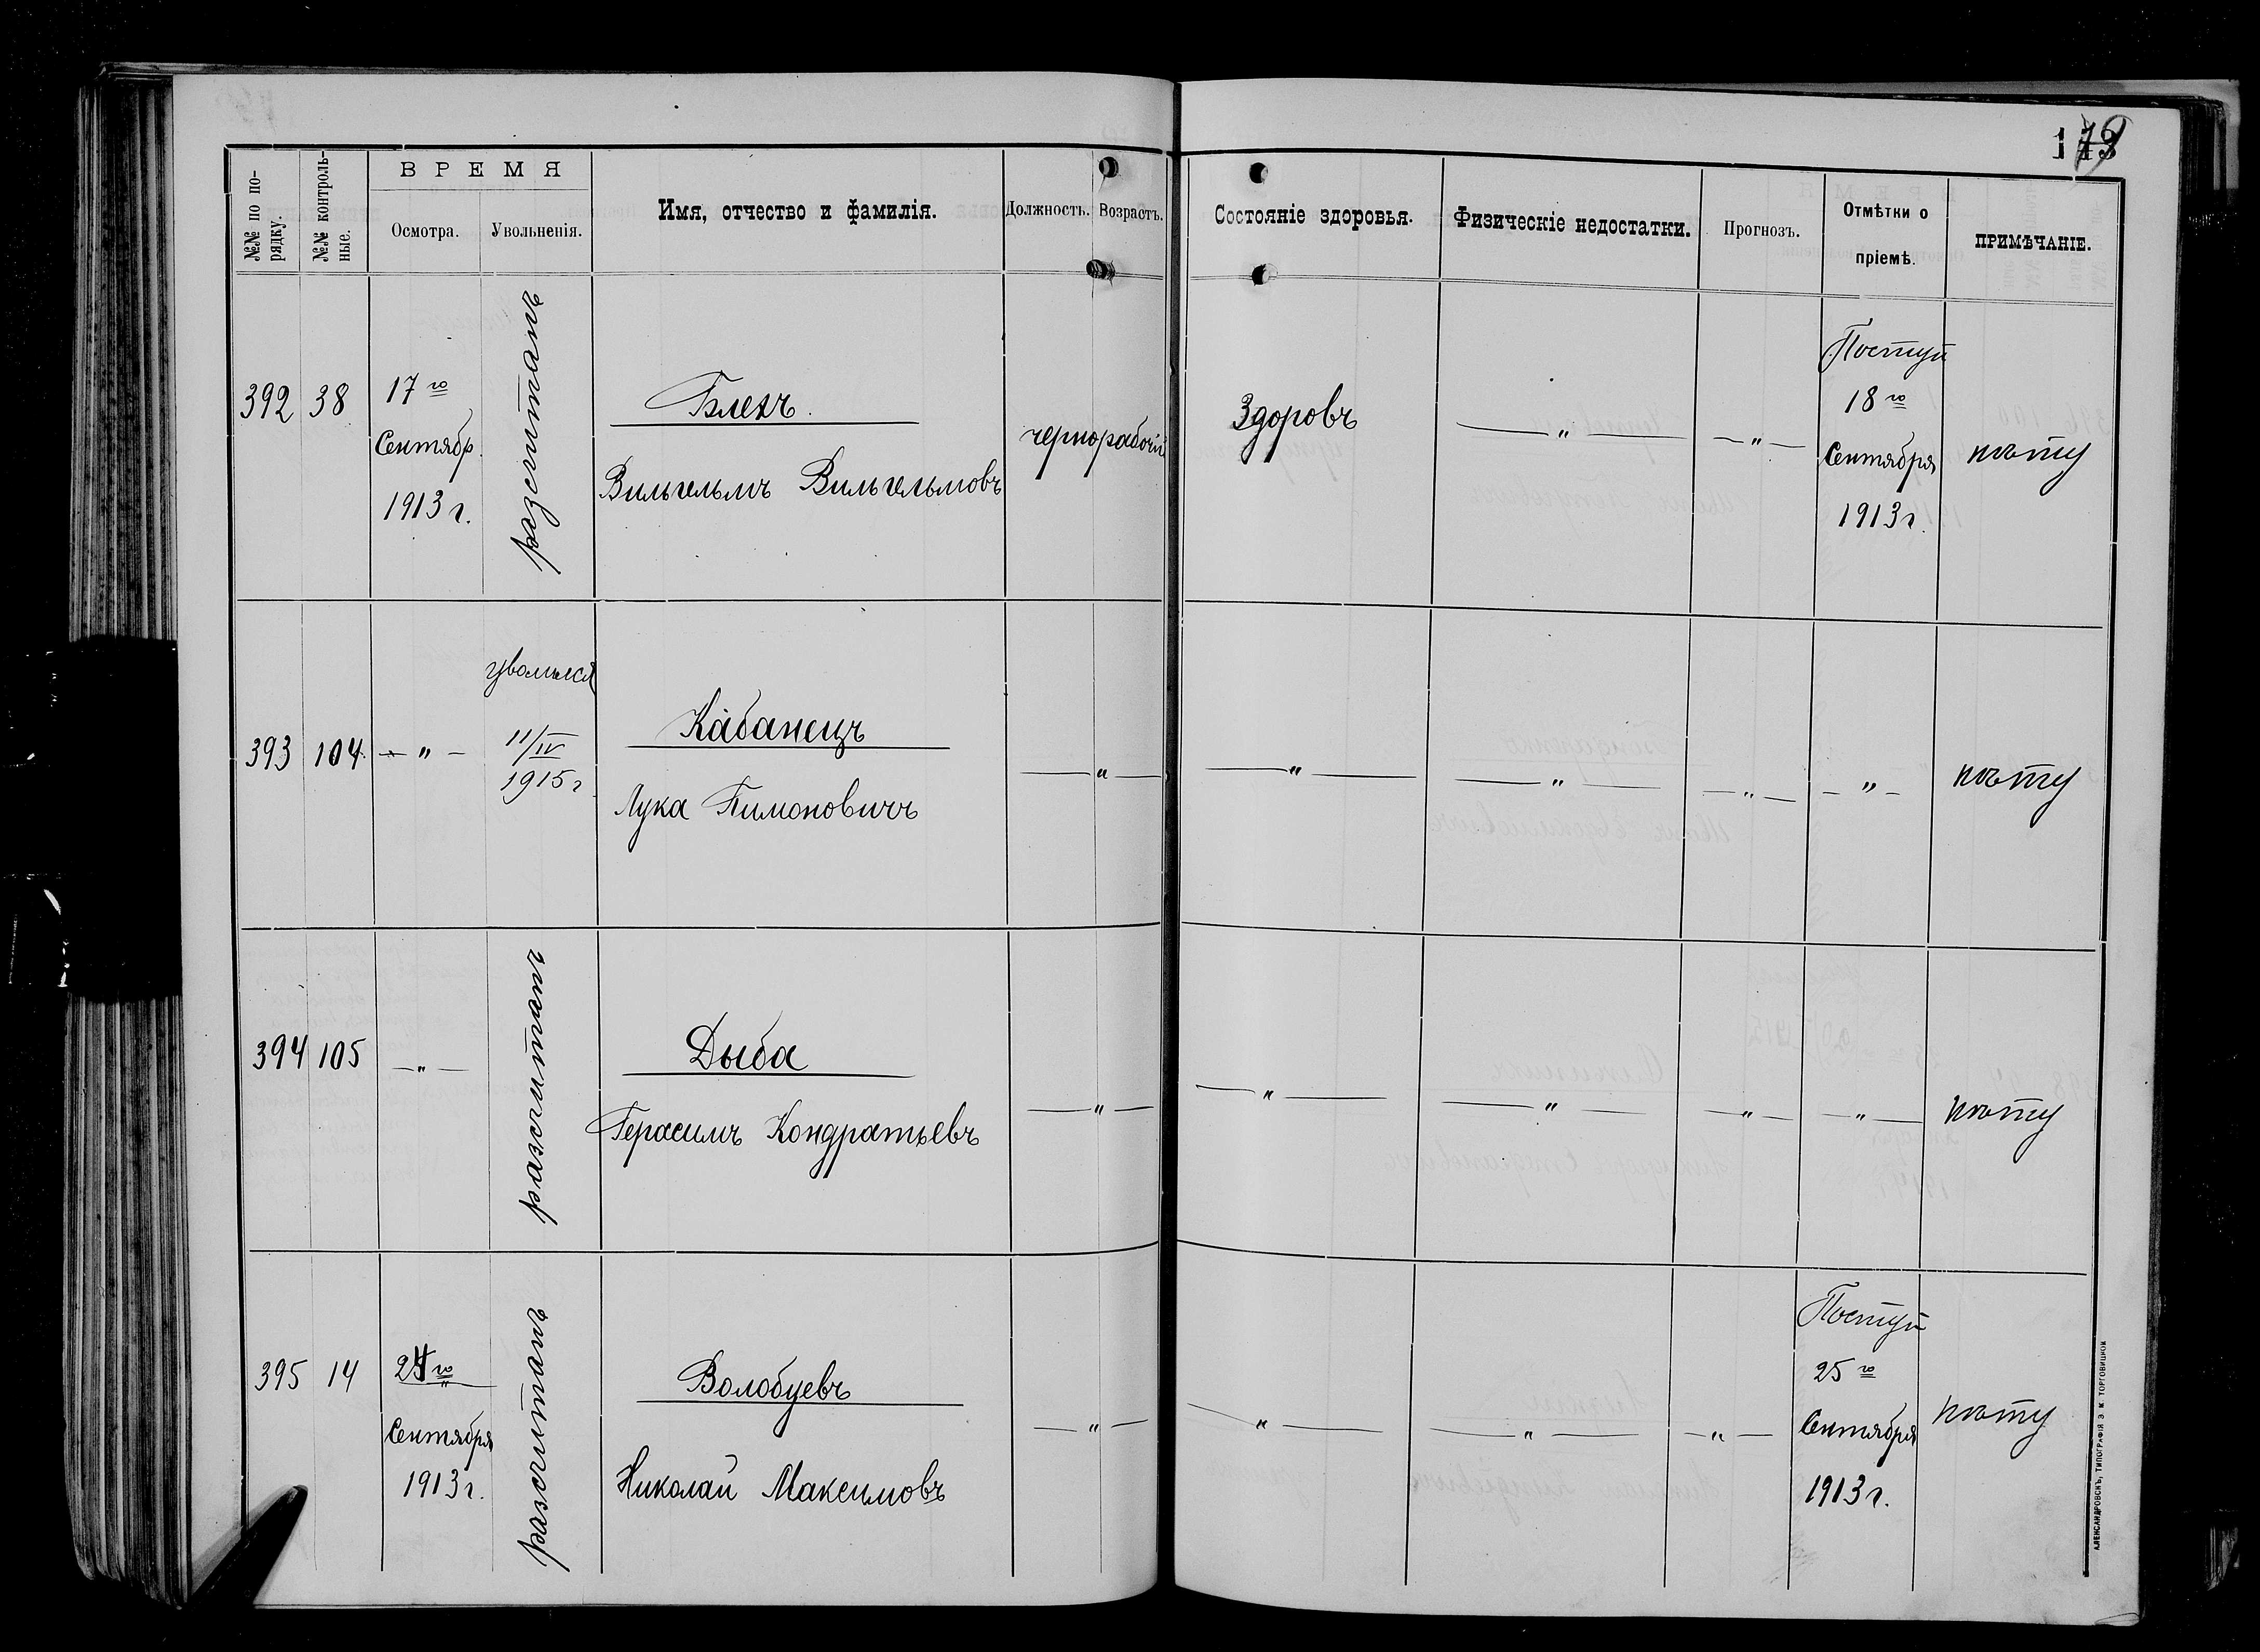 173
№№ по по-
рядку.
№№ контроль-
ные.
ВРЕМЯ
Осмотра.
Увольненія.
Имя, отчество и фамилія.
Должность.
Возрастъ.
Состояніе здоровья.
Физическіе недостатки.
Прогнозъ.
Отмѣтки о
пріемѣ.
ПРИМѢЧАНІЕ.
392
38
17го
Сентябр.
1913 г.
разсчитанъ
Вильгельмъ Вильгельмовъ
чернорабочій
Здоровъ
— „ —
— „ —
Поступ
18го
Сентября
1913 г.
393
104
— „ —
уволился
11/IV
1915 г
Кабанецъ
Лука Пимоновичъ
— „ —
— „ —
— „ —
— „ —
— „ —
394
105
— „ —
разсчитанъ
Дыба
Герасимъ Кондратьевъ
— „ —
— „ —
— „ —
— „ —
— „ —
395
14
24го
Сентября
1913 г.
разсчитанъ
Волобуевъ
Николай Максимовъ
— „ —
— „ —
— „ —
— „ —
Поступ
25го
Сентября
1913 г.
АЛЕКСАНДРОВСКЪ, ТИПОГРАФІЯ Э. И. ТОРГОВИЦКОЙ